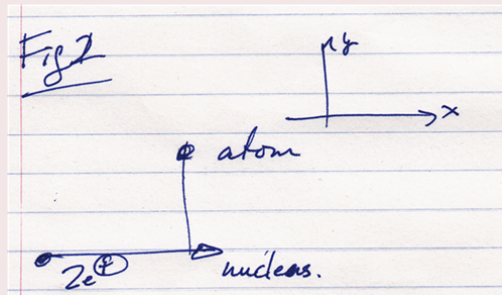 Fig 2
y
x
atom
2e⊕
nucleus.